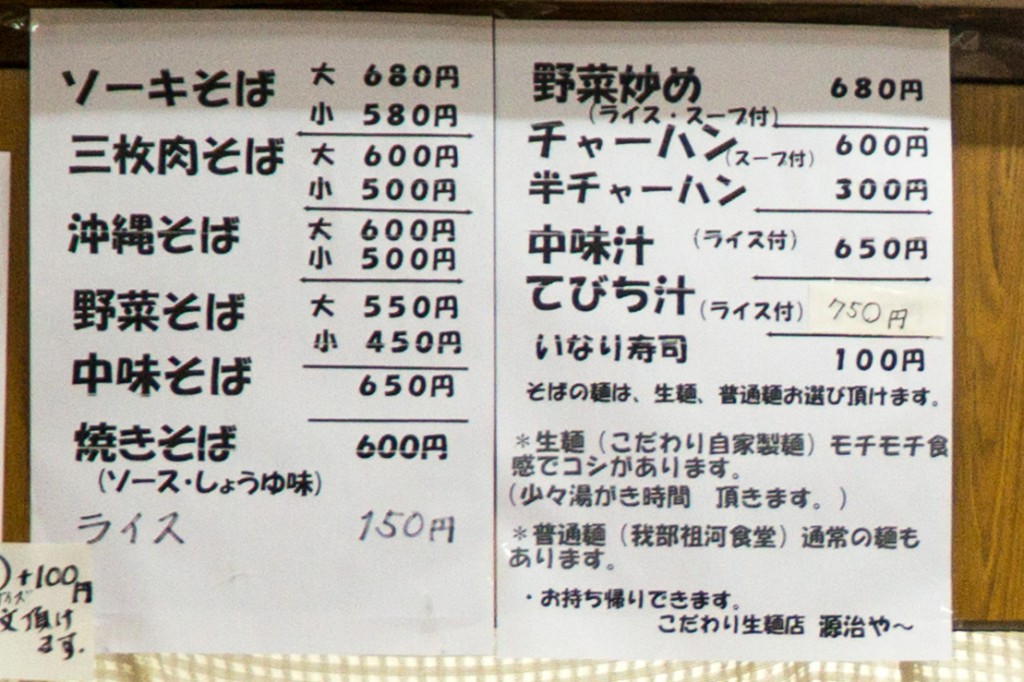 ソーキそば 大 680円
小 580円
三枚肉そば 大 600円
小 500円
沖縄そば 大 600円
小 500円
野菜そば 大 550円
小 450円
中味そば 650円
焼きそば 600円
(ソース・しょうゆ味)
ライス 150円
野菜炒め 680円
(ライス・スープ付)
チャーハン(スープ付) 600円
半チャーハン 300円
中味汁 (ライス付) 650円
てびち汁(ライス付) 750円
いなり寿司 100円
そばの麺は、生麺、普通麺お選び頂けます。
*生麺(こだわり自家製麺)モチモチ食
感でコシがあります。
(少々湯がき時間 頂きます。)
*普通麺(我部祖河食堂)通常の麺も
あります。
・お持ち帰りできます。
こだわり生麺店 源治や~
)+100円
文頂け
ます.